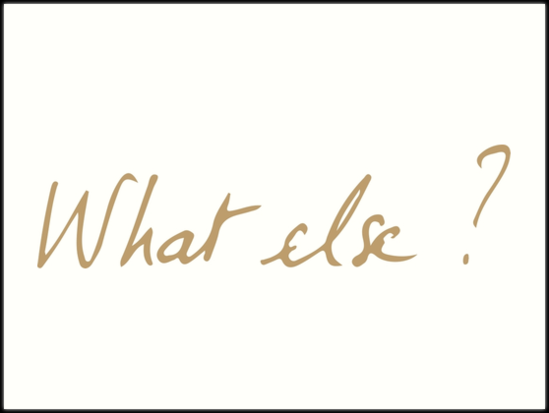 What else ?